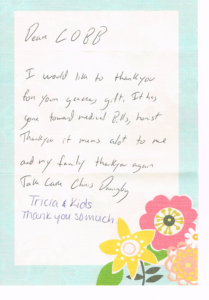 Dear COBB
I would like to thankyou
for your generous gift. It has
gone toward medical Bills,
Thankyou it means alot to me
and my family thankyou again
Take Care Chris
Tricia & Kids
Thank you so much